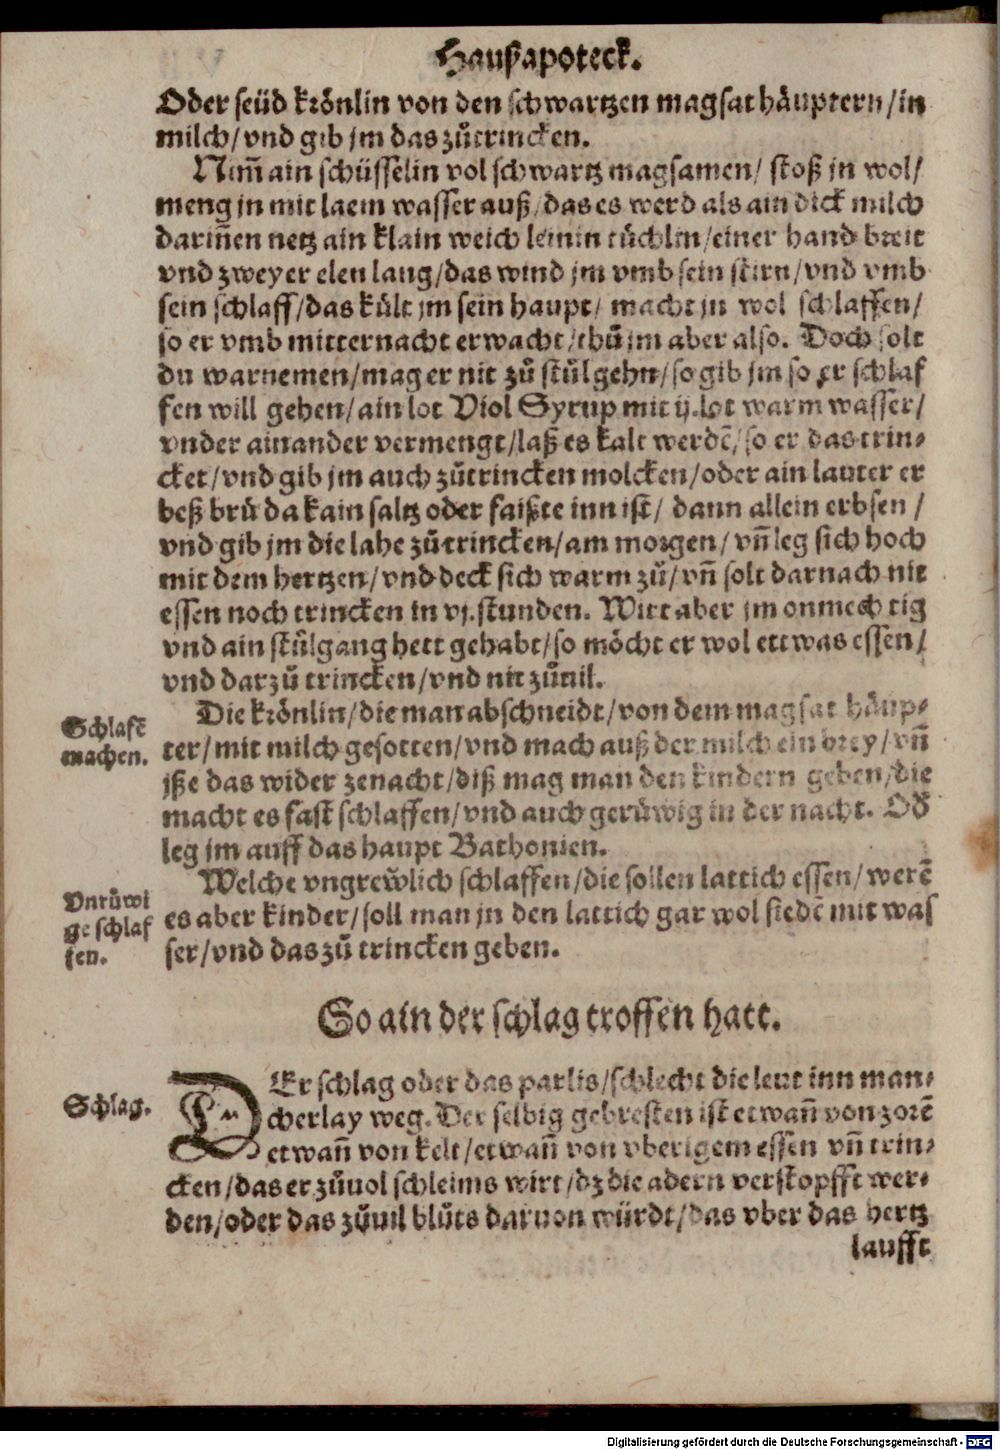 Haußapoteck.
Oder seüd krönlin von den schwartzen magsathäuptern/in
milch/vnd gib jm das zůtrincken.
Nim̃ ain schüsselin vol schwartz magsamen/ stoß jn wol/
meng jn mit laem wasser auß/das es werd als ain dick milch
dariñen netz ain klain weich leinin tüchlin/einer hand breit
vnd zweyer elen lang/das wind jm vmb sein stirn/vnd vmb
sein schlaff/das kült jm sein haupt/ macht jn wol schlaffen/
so er vmb mitternacht erwacht/thů jm aber also. Doch solt
du warnemen/mag er nit zů stůl gehn/so gib jm so er schlaf
fen will gehen/ain lot Viol Syrup mit ij.lot warm wasser/
vnder ainander vermengt/laß es kalt werdẽ/so er das trin⸗
cket/vnd gib jm auch zůtrincken molcken/oder ain lauter er
beß brü da kain saltz oder faißte inn ist/ dann allein erbsen/
vnd gib jm die lahe zůtrincken/am morgen/vñ leg sich hoch
mit dem hertzen/vnd deck sich warm zů/vñ solt darnach nit
essen noch trincken in vj.stunden. Wirt aber jm onmechtig
vnd ain stůlgang hett gehabt/so möcht er wol ettwas essen/
vnd darzů trincken/vnd nit zůuil.
Schlafẽ
machen.
Die krönlin/die man abschneidt/von dem magsat häup⸗
ter/mit milch gesotten/vnd mach auß der milch ein brey/vñ
jße das wider zenacht/diß mag man den kindern geben/die
macht es fast schlaffen/vnd auch gerůwig in der nacht. Od̃
leg jm auff das haupt Bathonien.
Vnrůwi
ge schlaf
fen.
Welche vngrewlich schlaffen/die sollen lattich essen/werẽ
es aber kinder/soll man jn den lattich gar wol siedẽ mit was
ser/vnd das zů trincken geben.
So ain der schlag troffen hatt.
Schlag.
DEr schlag oder das parlis/schlecht die leut inn man⸗
cherlay weg. Der selbig gebresten ist etwañ von zorẽ
etwañ von kelt/etwañ von vberigem essen vñ trin⸗
cken/das er zůuol schleims wirt/dz die adern verstopfft wer⸗
den/oder das zůuil blůts daruon würdt/das vber das hertz
laufft
Digitalisierung gefördert durch die Deutsche Forschungsgemeinschaft - DFG